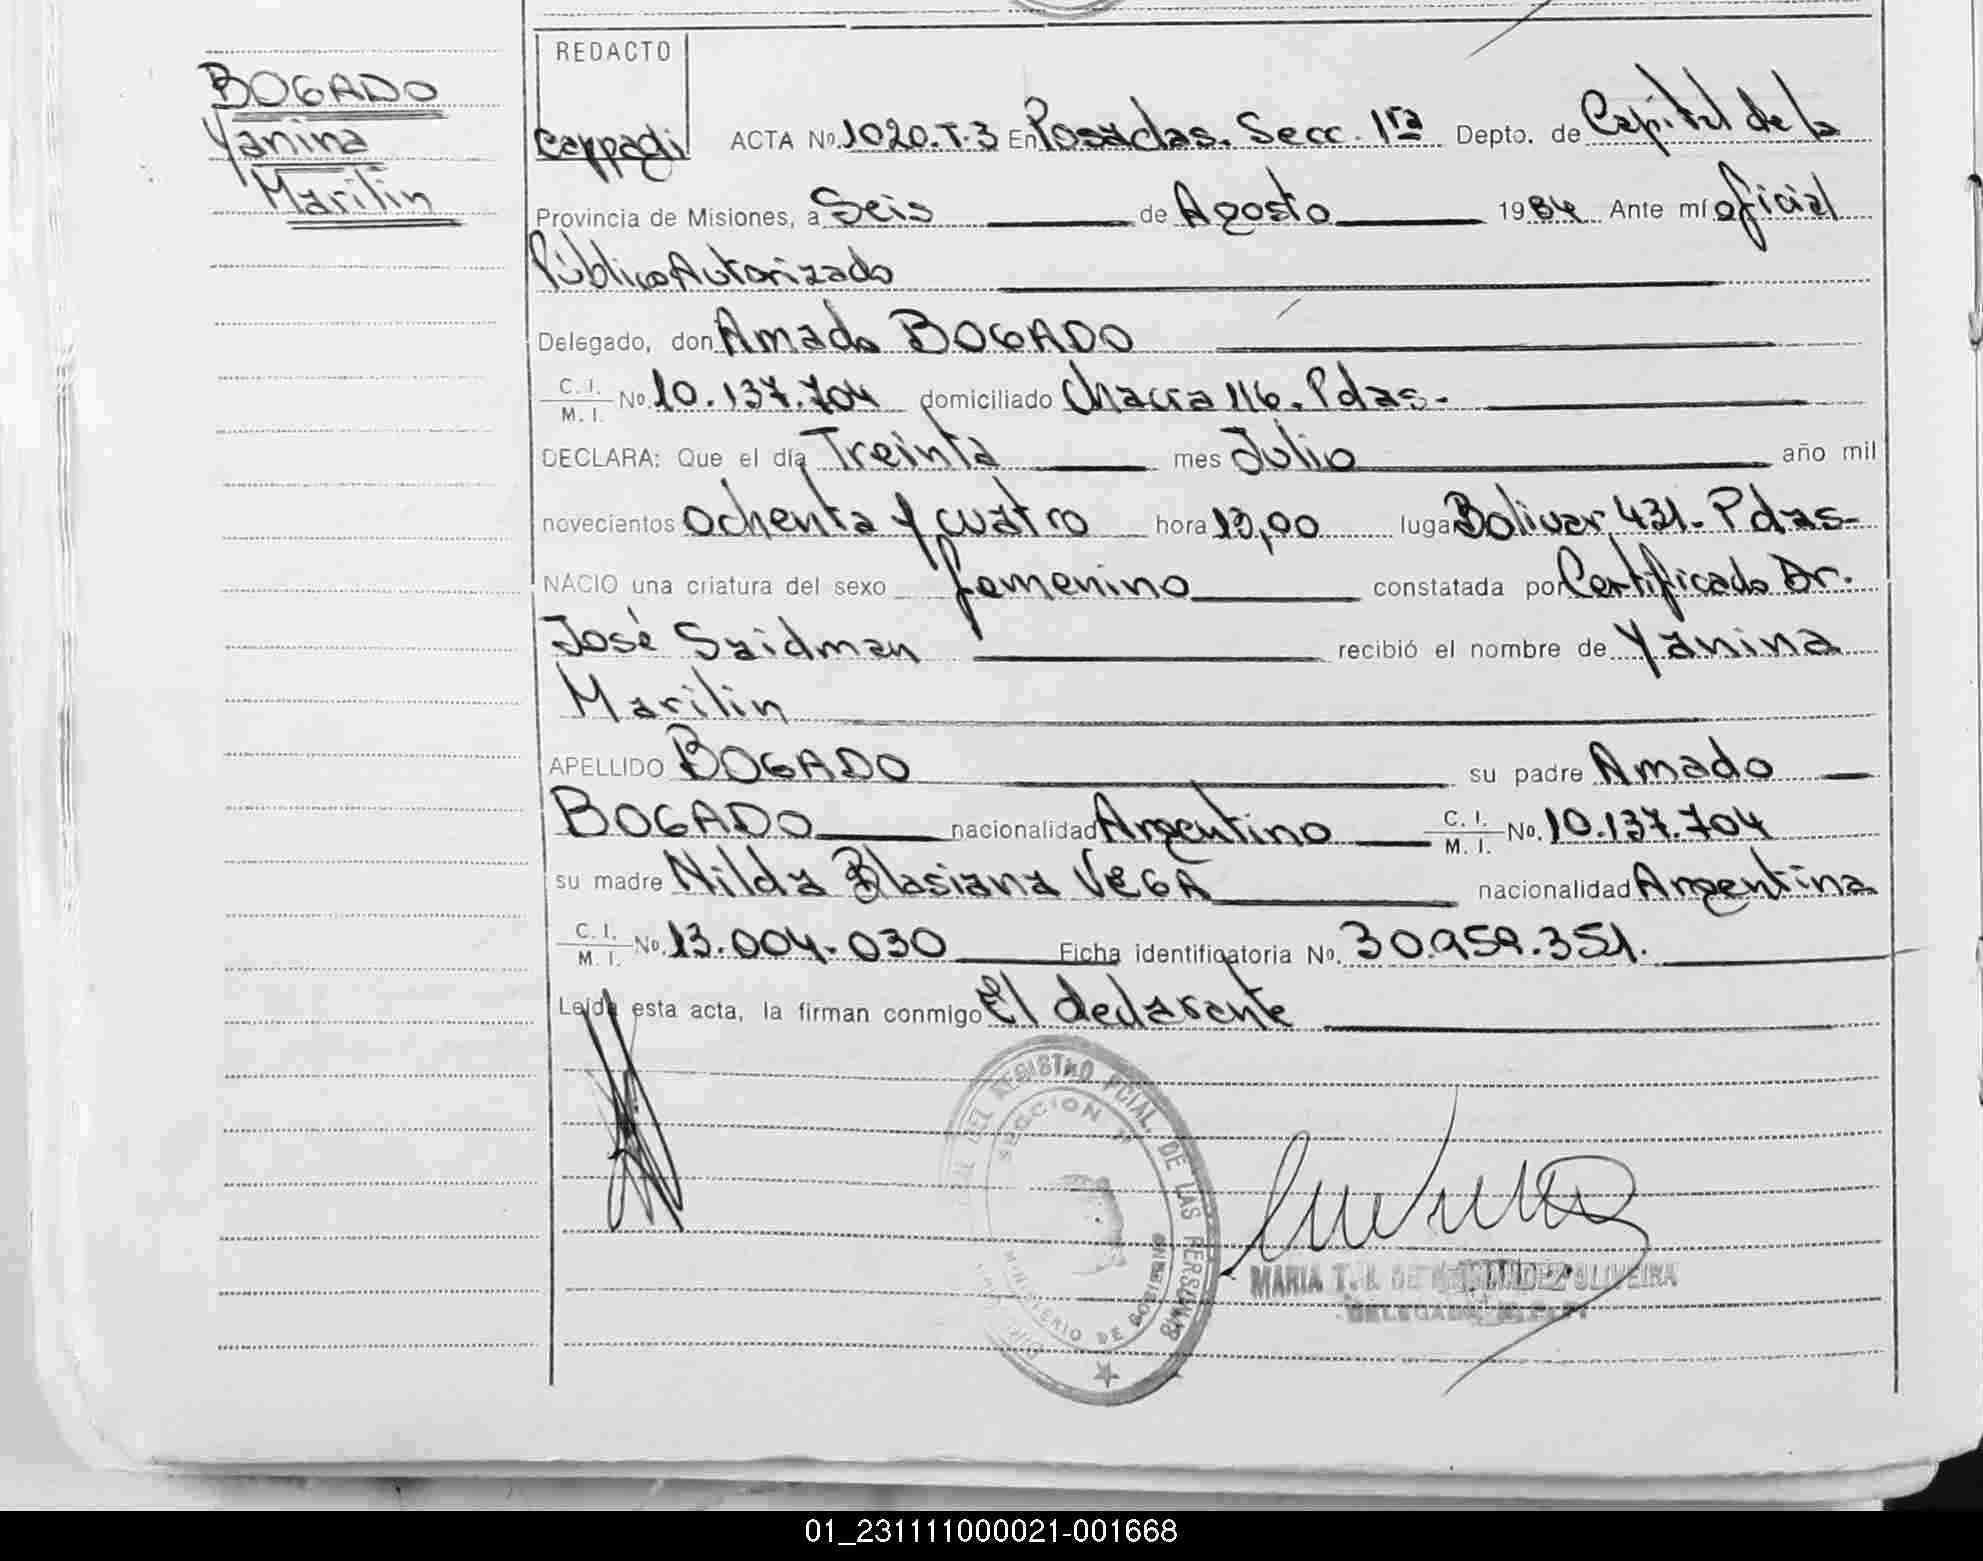 BOGADO
Yanina
Marilin
REDACTO
Cappagi
ACTA No. 1020.T.3 En Posadas. Secc. 1ra Depto. de Capital de la
Provincia de Misiones, a Seis de Agosto 1984 Ante mí oficial
Público Autorizado
Delegado, don Amado BOGADO
C. I. / M. I. No. 10.137.704 domiciliado Chacra 116. Pdas.
DECLARA: Que el día Treinta mes Julio año mil
novecientos ochenta y cuatro hora 13,00 lugar Bolivar 431. Pdas-
NACIO una criatura del sexo femenino constatada por Certificado Dr.
José Saidman recibió el nombre de Yanina
Marilin
APELLIDO BOGADO su padre Amado
BOGADO nacionalidad Argentino C. I. / M. I. No. 10.137.704
su madre Nilda Blasiana VEGA nacionalidad Argentina
C. I. / M. I. No. 13.004.030 Ficha identificatoria No. 30.959.351.
Leída esta acta, la firman conmigo El declarante
DEL REGISTRO PCIAL. DE LAS PERSONAS
SECCION 1ª
MINISTERIO DE GOBIERNO
MARIA T. DE OLIVEIRA
DELEGADA
01_231111000021-001668